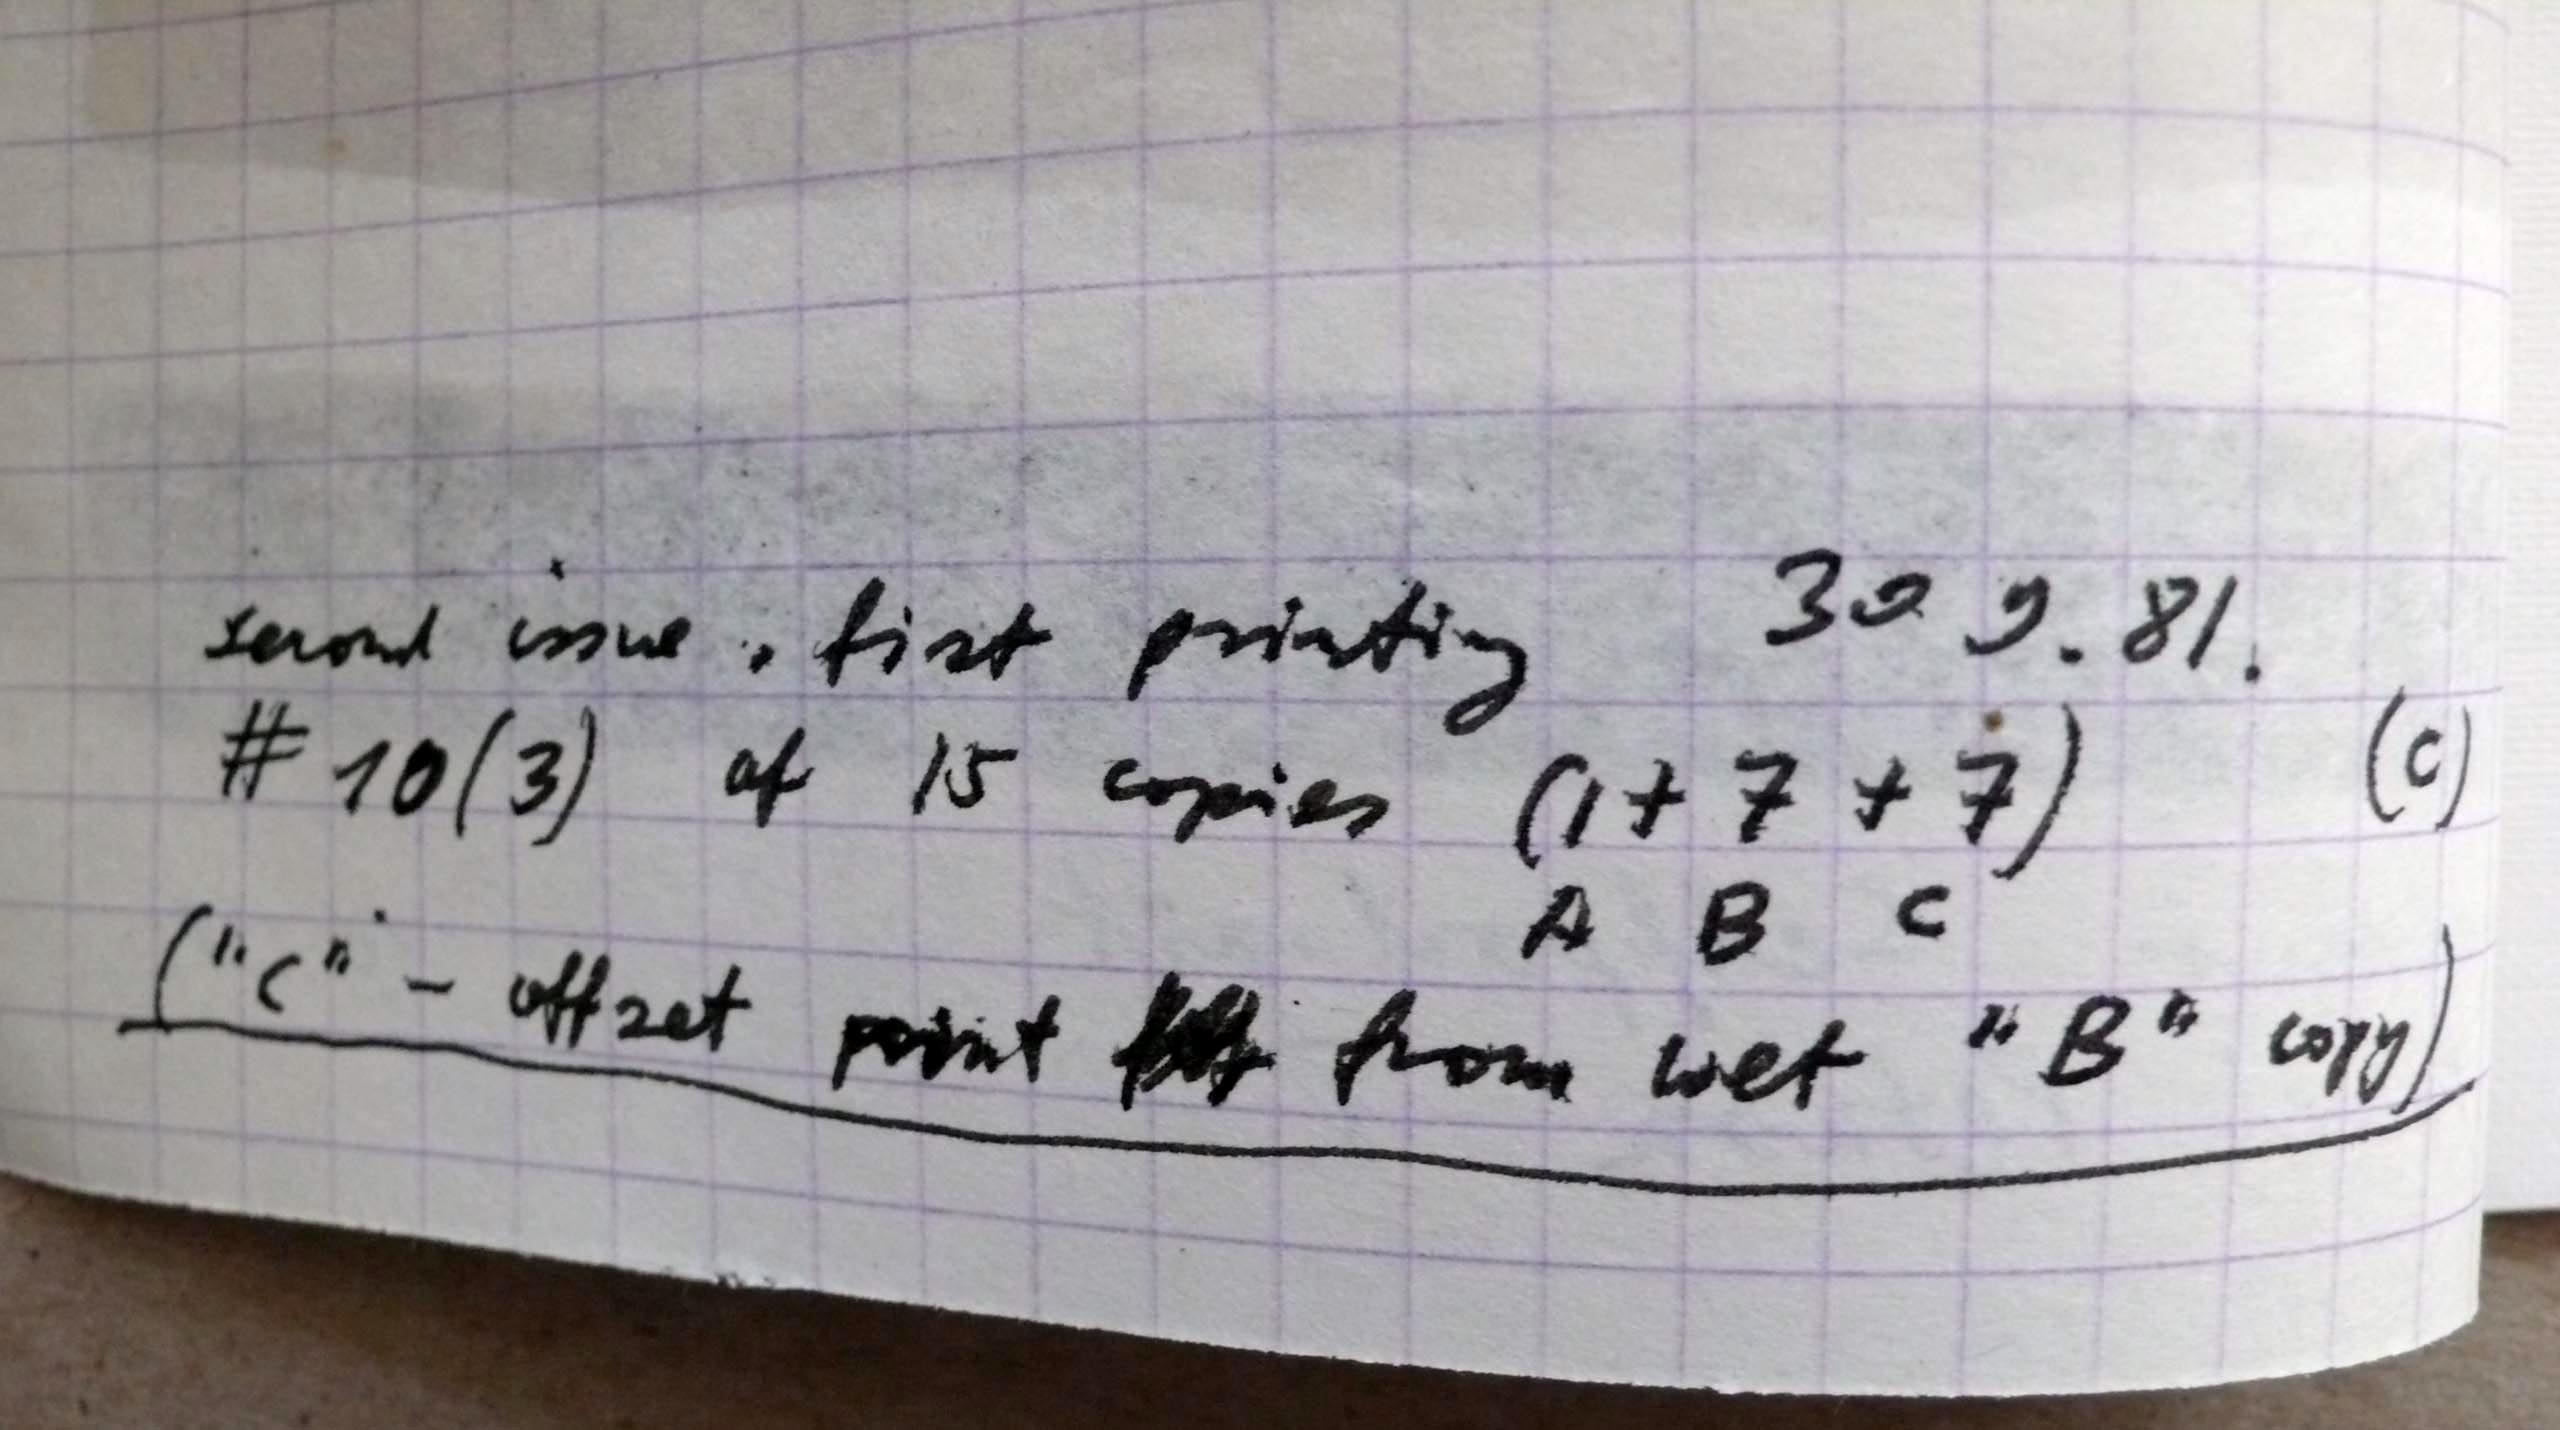 second issue, first printing 30 9. 81.
# 10(3) of 15 copies (1 + 7 + 7) (C)
A B C
("C" - offset print from wet "B" copy)